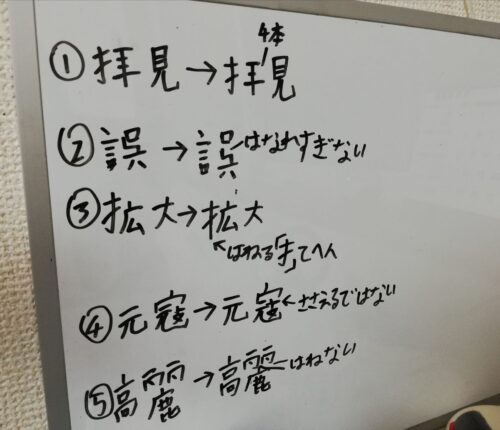 4本
①拝見→拝見
②誤→誤はなれすぎない
③拡大→拡大
はねる「扌」てへん
④元寇→元寇←ささえるではない
⑤高麗→高麗←はねない